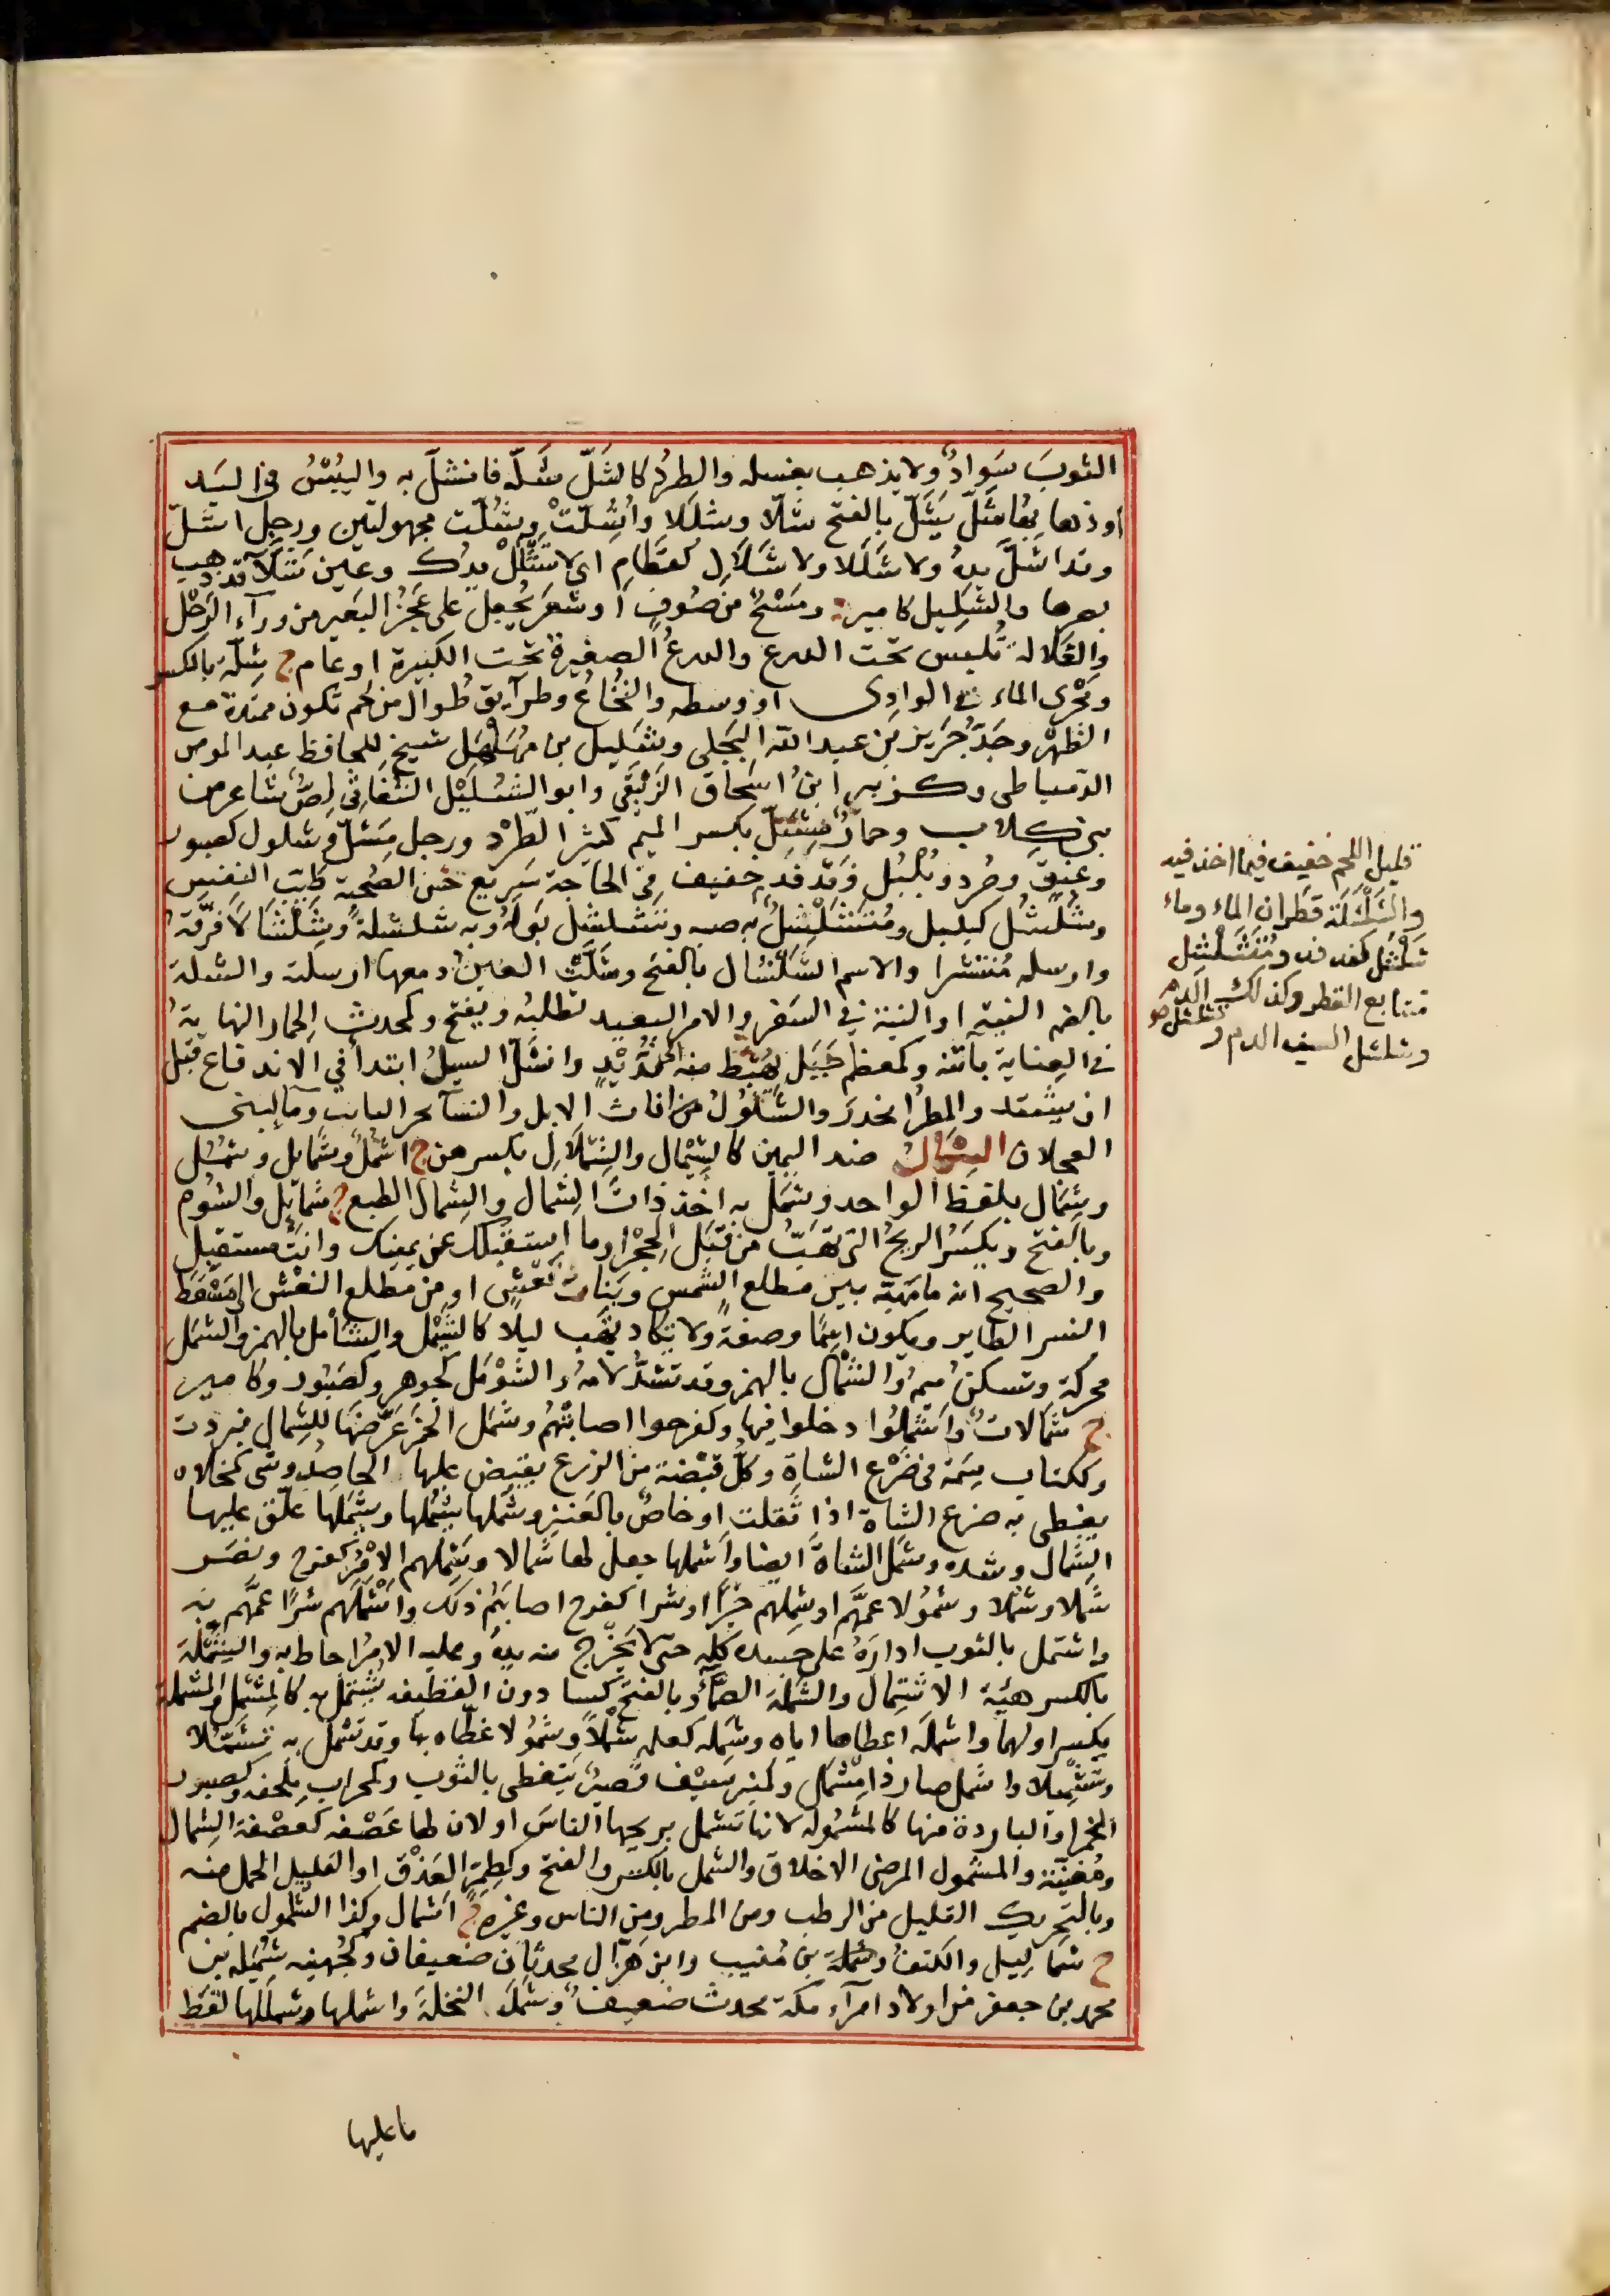 الثوبَ سَوادٌ ولا يذهب بغسله والطرد كالشَلّ شَلّه فانشلّ به واليُبْسُ في اليَد
او ذهابُها شَلّ يَشَلّ بالفتح شلّا وشلَلا واُشِلّتْ وشُلّت مجهولتين ورجل اشلّ
وقد اشلّ يده ولا شَلَلا ولا شَلَالِ كقَطَامِ اي لا تَشْلَلْ يدك وعين شَلّآ قد ذهب
بصرها والشَلِيل كامير مِسْحٌ من صُوفٍ اَو شعَر يُجعل على عَجُز البَعير من ورآء الرَحْل
والغلالة تُلبس تحت الدرع والدرعُ الصغيرة تحت الكبيرة او عام ج شِلّة بالكسر
ومَجْرى الماء في الوادى او وسطه والنُخاعُ وطرآيق طُوال من لحم تكون ممتدة مع
الظهْر وجَدّ جَرير بن عبد الله البَجَلي وشَلِيل بن مُهَلْهَل شيخ للحافظ عبد المومن
الدمياطى وكزبير ابنُ اسحاق الزنبَقي وابو الشُلَيْل النُفَاثي لِصٌّ شاعر من
بني كلاب وحمارٌ مِشَلّ بكسر الميم كثير الطَرْد ورجل مِشَلٌّ وشلول كصبور
وعُنُقٍ وصُرد وبُلْبُل وفَدْفَدٍ خفيف في الحاجة سَرِيع حَسَن الصُحبة طيّب النفس
وشُلشُل كبلبل ومُتَشَلْشِلٌ به صب وتَشلشل بَوْلُه وبه شلشلةً وشِلْشَالًا فرّقه
وارسله مُنتشرا والاسم الشَلْشال بالفتح وشَلّت العينُ دمعها ارسلته والشلة
بالضم النية او النية في السَفر والامر البعيد تطلبه ويفتح وكمحدث الحمار النهاية
في العِناية بأتنه وكمعظم جَبَل يُهبَط منه الى قُدَيْدٍ وانشَلّ السيلُ ابتدأ في الاندفاع قبل
ان يشتد والمطرُ انحدرَ والشَلُولُ من اناث الابل والنسآ نحو الناب وما لِبنى
العجلان الشِمالُ ضد اليمين كالشِيْمال والشِمْلال بكسرهن ج اشمُلٌ وشَمايل وشُمُل
وشِمال بلفظ الواحد وشمَل به اخذ ذاتَ الشِمال والشِمال الطبع ج شَمآيل والشُوم
وبالفتح ويُكسَر الريحُ التي تَهُبّ من قِبَل الحِجْر او ما استقبلك عن يمينك وانت مستقبل
والصحيح انه ما مَهَبّه بين مطلع الشمس وبَنات نَعْشٍ او من مَطلع النَعْش الى مَسْقَط
النسر الطاير ويكون اسمًا وصفةً ولا تكاد تهُب ليلا كالشَيْمَل والشَأمَل بالهمز والشَمَل
محركة وتسكن ميمُه والشَمْأل بالهمز وقد تشدّ لامُه والشَوْمَل كجوهر وكصَبُور وكامير
ج شَمالاتٌ واَشمَلوا دخلوا فيها وكفرحوا اصابتْهُم وشمَل الخمَر عَرَّضَهَا للشِمال فبردت
وككتاب سِمَة في ضَرْع الشاةِ وكُلّ قَبْضَة من الزرع يقبِض عليها الحاصِدُ وشى كمخلاه
يغطى به ضرع الشاة اذا ثقلت او خاصٌ بالعَنْز وشَملها يشمُلها ويشمِلها علّق عليها
الشِمال وشده وشمَل الشاةَ ايضا واَشملها جعل لها شِمالا وشمِلهم الاَمْرُ كفرح ونصَر
شَمَلا وشَمْلا وشمُولا عمّهم او شمِلهم خيرًا او شرا كفرح اصابهُم ذلك واَشْمَلَهم شرّا عمَّهم به
واشتمل بالثوب ادارَهُ على جسده كلّه حتى لا يَخْرُج منه يده وعليه الامرُ احاط به والشِمْلة
بالكسر هيئة الاشتِمال والشَمْلة الصمّآ وبالفتح كسا دون القطيفه يُشتمل به كالمِشمَل والمشملة
بكسر اولهما واشمله اعطاها اياه وشَمِله كعلمه شَمْلًا وشمُولا غطّاه بها وقد تَشمَّل به تَشَمُّلا
وتَشْمِيلا واشمل صار ذا مِشْمَل وكمنبر سَيْف قصيرٌ يتغطى بالثوب وكمحراب ملحفه وكصبور
الخمر او الباردة منها كالمشمُوله لانها تَشمل بريحها الناسَ او لان لها عَصْفه كعصْفة الشِمال
ومُغَنّية والمشمول المرضى الاخلاق والشمل بالكسر والفتح وكطِمِرّ العَذْق او القليل الحمل منه
وبالتحريك القليل من الرطب ومن المطر ومِن الناس وغيره ج اَشمال وكذا الشُمُول بالضم
ج شمالِيل والكتفُ وشَمْلَة بن مُنيب وابن هزّال محدثان ضعيفان وكجُهينه شُمَيله بن
محمد بن جعفر من اولاد امرآء مكة محدث ضعيفٌ وشَمَلَ النخلة واشملها وشمللها لقَط
ما عليها
قليل اللحم خفيف فيما اخذ فيه
والشَلْشَلَة قطران الماء وماء
شَلْشَل كفدفد ومُتَشَلْشِل
متتابع القطر وكذلك الدم
وشلشل السيف الدم و
تشلشل صو